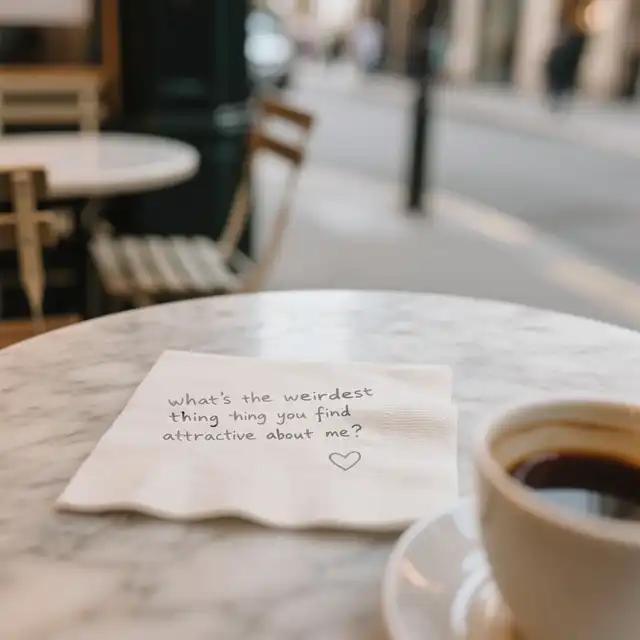 what's the weirdest
thing hing you find
attractive about me?